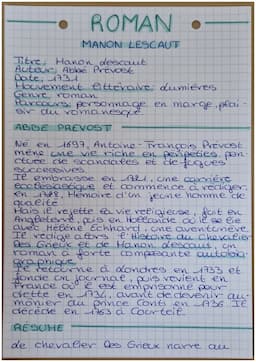 ROMAN
MANON LESCAUT
Titre, Manon descaut
Auteur, Abbé Prévost
Date, 1731
Mouvement littéraire dumières
Genre roman
Parcours, personnage en marge, plai-
sir du romanesque
ABBE PREVOST
Né en 1697, Antoine-François Prévost
mène une vie riche en péripéties, pon
ctuée de scandales et de fugues
successives
Il embrasse en 1721, une carrière
ecclésiastique et commence à rédiger,
en 1728, Mémoire d'un jeune homme de
qualité
Mais il rejette sa vie religieuse, fuit en
Angleterre, puis en Hollande où il se lie
avec Hélène Eckhard, une aventurière.
Il rédige alors l'Histoire du chevalier
Des Grieux et de Manon descaut, un
roman à forte composante autobio
graphique
Il retourne à dondres en 1733 et
fonde un journal, puis revient en
France où il est emprisonné pour
dette en 1736, avant de devenir au-
mônier du prince Conti en 1736 Il
décède en 1763 à Courteil.
RESUME
de chevalier Des Grieux narre au